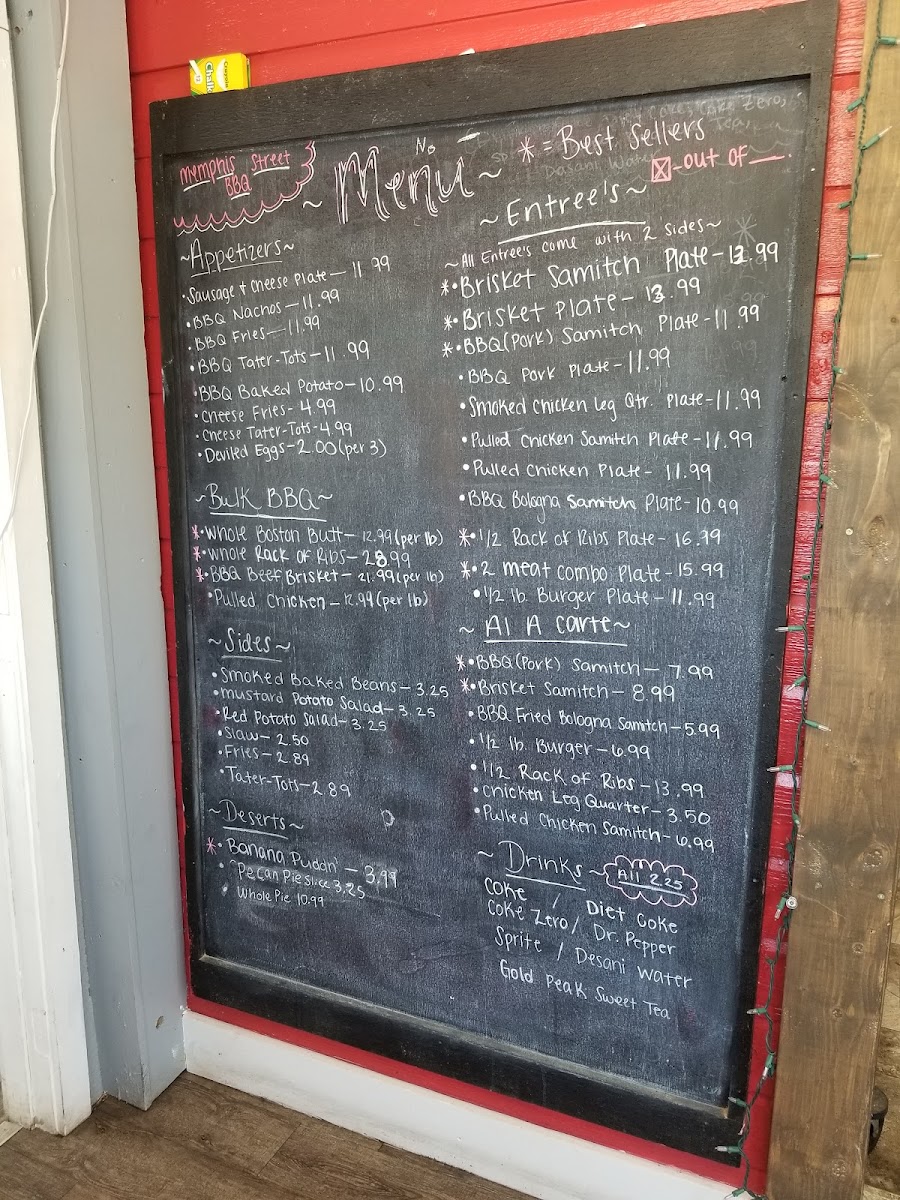 Crayola
Chalk
Memphis Street
BBQ
No
~ Menu ~
* = Best Sellers
out of
~Appetizers~
•Sausage + Cheese Plate — 11.99
•BBQ Nachos — 11.99
•BBQ Fries — 11.99
•BBQ Tater-Tots — 11.99
•BBQ Baked Potato — 10.99
•Cheese Fries - 4.99
•Cheese Tater-Tots - 4.99
•Deviled Eggs - 2.00 (per 3)
~Bulk BBQ~
*•Whole Boston Butt — 12.99 (per lb)
*•Whole Rack of Ribs — 28.99
*•BBQ Beef Brisket — 21.99 (per lb)
•Pulled Chicken — 12.99 (per lb)
~Sides~
•Smoked Baked Beans — 3.25
•Mustard Potato Salad — 3.25
•Red Potato Salad — 3.25
•Slaw — 2.50
•Fries — 2.89
•Tater-Tots — 2.89
~Deserts~
*•Banana Puddn' — 3.99
•Pecan Pie Slice 3.25
•Whole Pie 10.99
~Entree's~
~All Entree's come with 2 sides~
*•Brisket Samitch Plate - 13.99
*•Brisket Plate - 13.99
*•BBQ (Pork) Samitch Plate - 11.99
•BBQ Pork Plate - 11.99
•Smoked Chicken Leg Qtr. Plate - 11.99
•Pulled Chicken Samitch Plate - 11.99
•Pulled Chicken Plate - 11.99
•BBQ Bologna Samitch Plate - 10.99
*•1/2 Rack of Ribs Plate - 16.99
*•2 meat combo Plate - 15.99
•1/2 lb. Burger Plate - 11.99
~ Al A Carte ~
*•BBQ (Pork) Samitch — 7.99
*•Brisket Samitch - 8.99
•BBQ Fried Bologna Samitch - 5.99
•1/2 lb. Burger - 6.99
•1/2 Rack of Ribs - 13.99
•Chicken Leg Quarter - 3.50
•Pulled Chicken Samitch - 6.99
~ Drinks ~ All 2.25
Coke / Diet Coke
Coke Zero / Dr. Pepper
Sprite / Desani Water
Gold Peak Sweet Tea